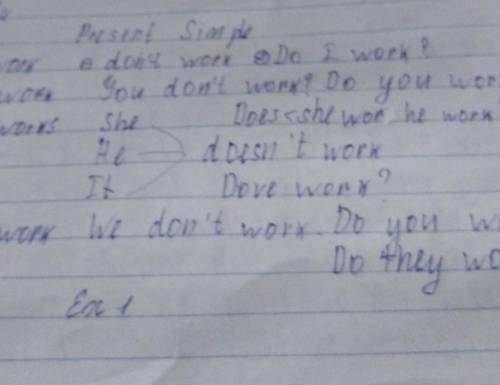 Present Simple
work ⊖ don't work Do I work?
work You don't work? Do you wor
works She Does she wor, he work
He doesn't work
It Dove work?
work We don't work. Do you w
Do they wo
Ex 1